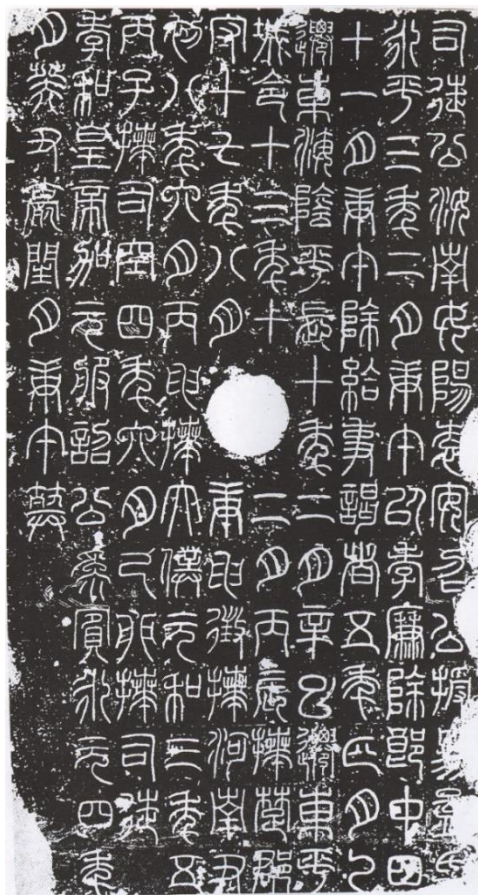 司徒公汝南女陽袁安召公授易孟氏
永平三年二月庚午以孝廉除郎中四
十一月庚午除給事謁者五年四月乙
遷東海陰平長十年二月辛巳遷東平
城令十三年十二月丙辰拜楚郡
守十七年八月庚申徵拜河南尹
初八年六月丙申拜太僕元和三年五
丙子拜司空四年六月己卯拜司徒
孝和皇帝加元服詔公為賓永元四年
月癸丑薨閏月庚午葬